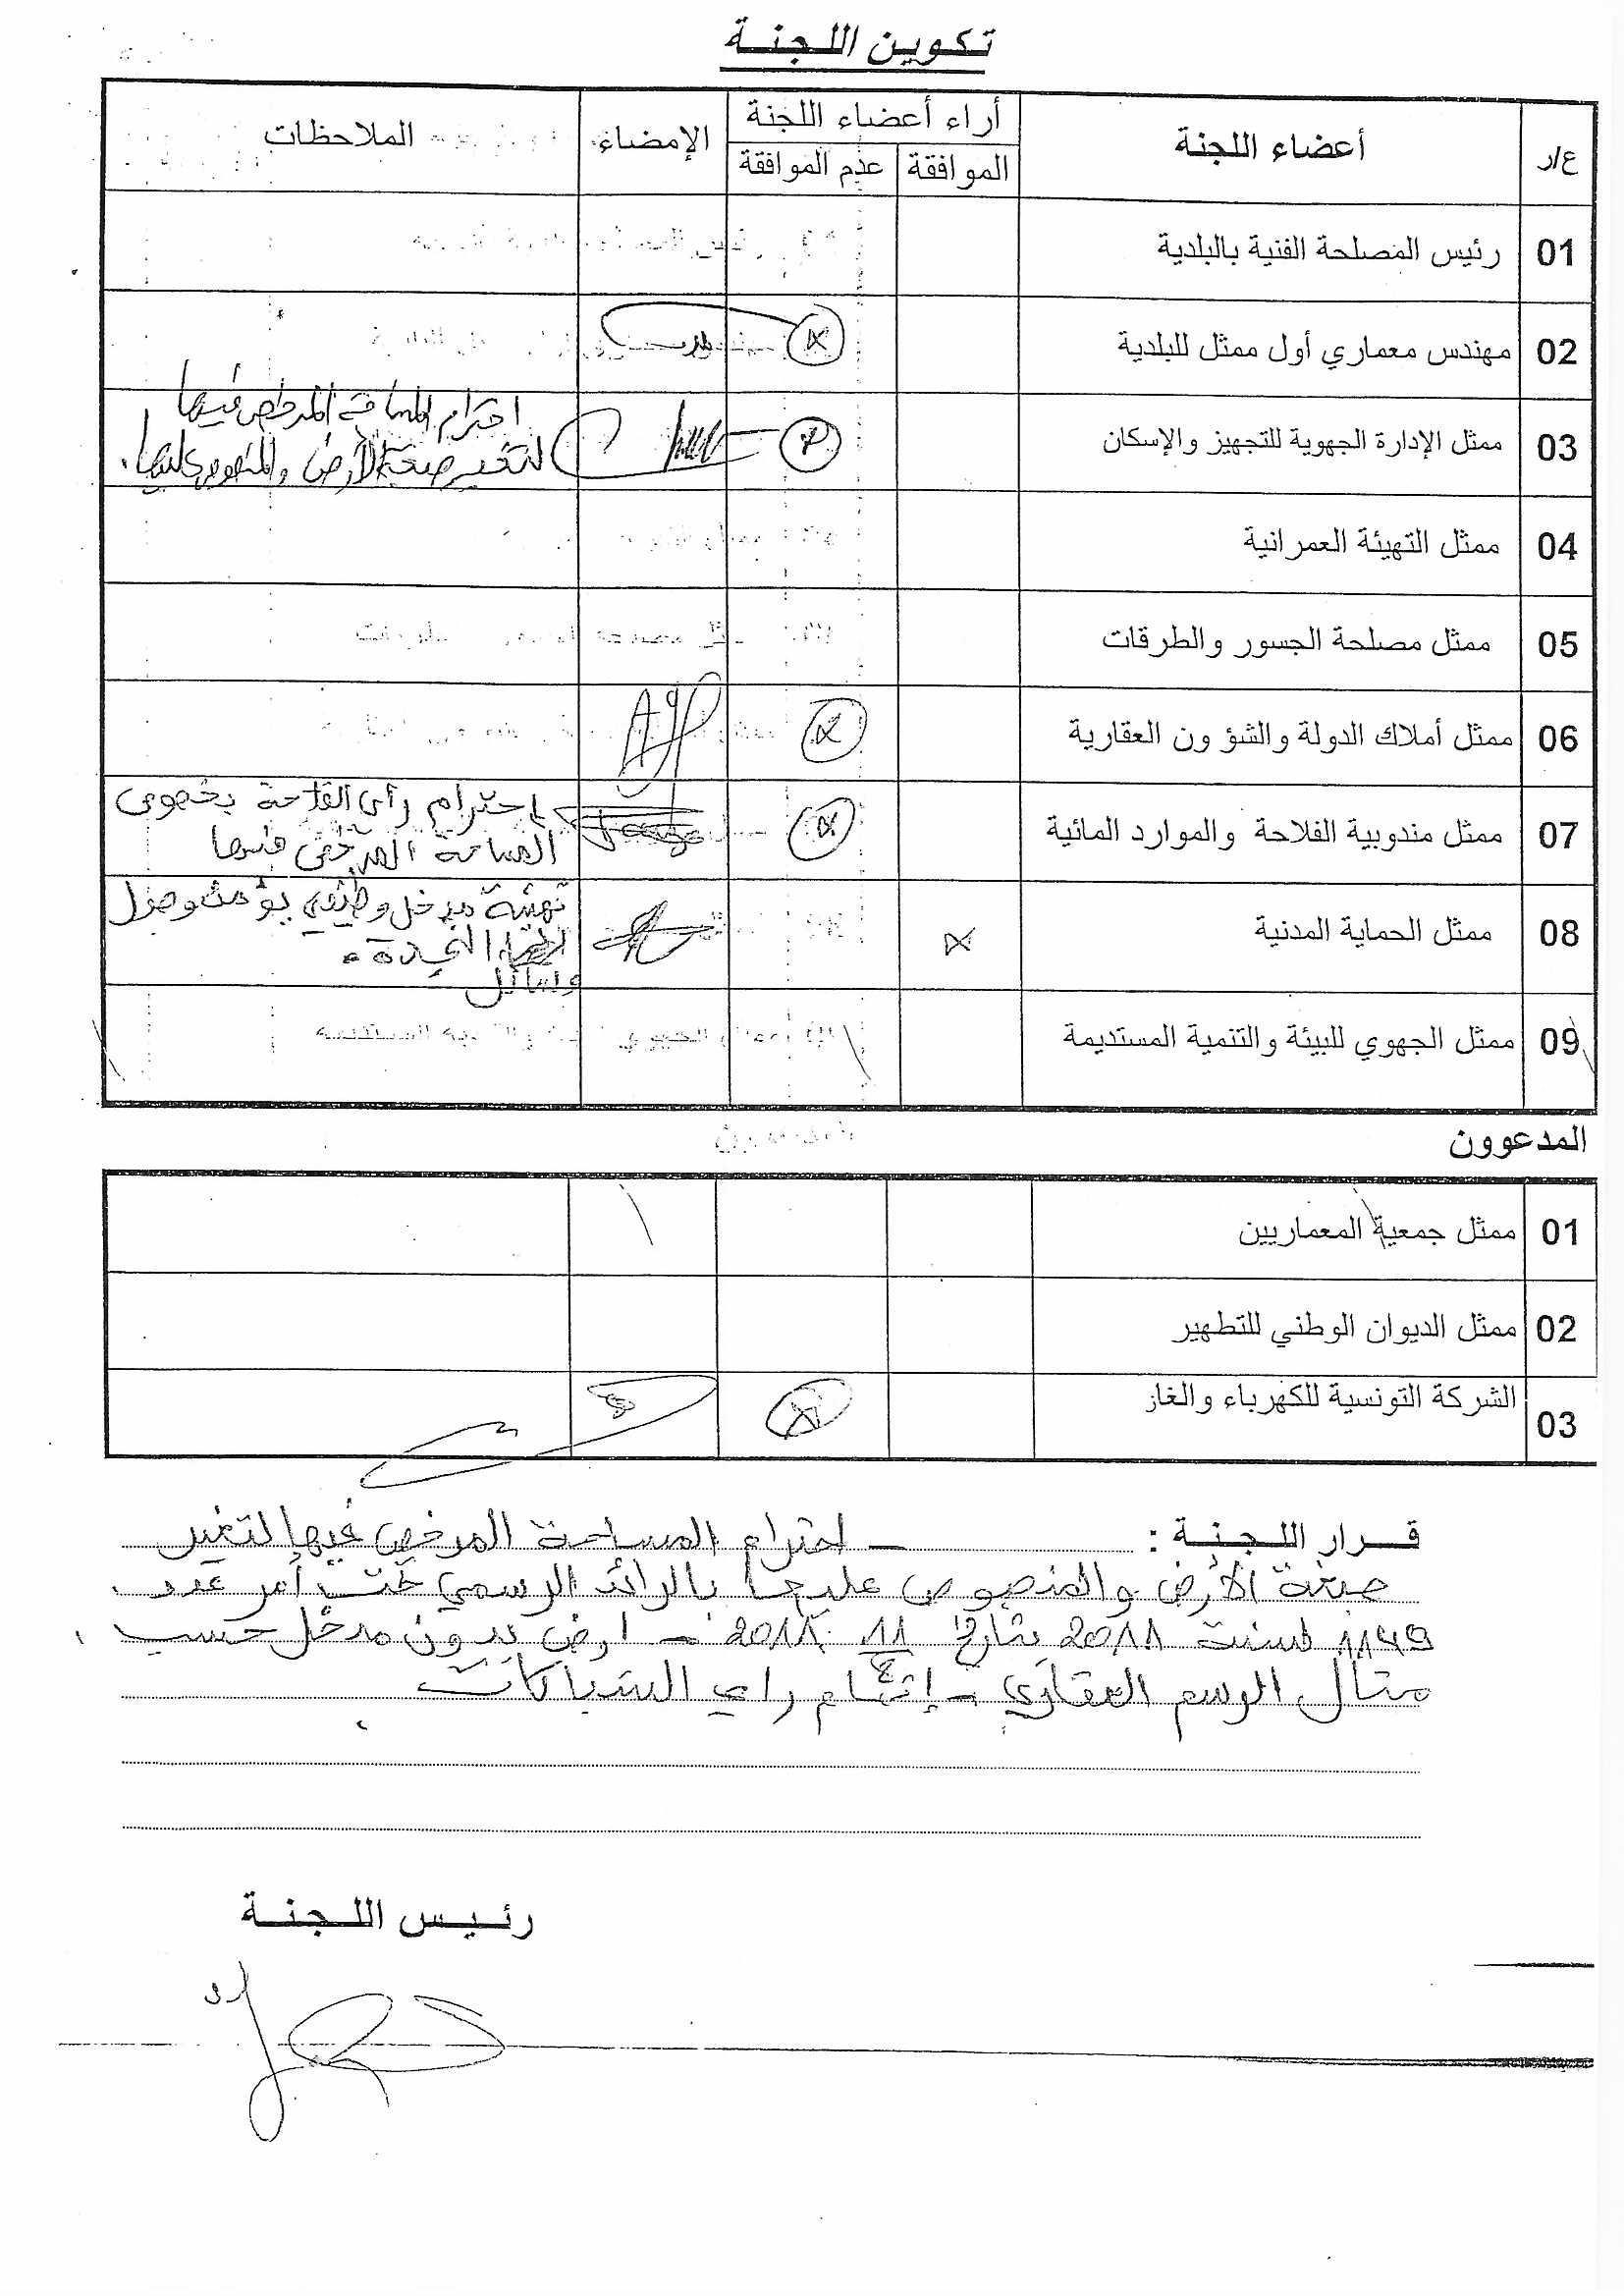 تكوين اللجنة
ع/ر أعضاء اللجنة أراء أعضاء اللجنة الإمضاء الملاحظات
الموافقة عدم الموافقة
01 رئيس المصلحة الفنية بالبلدية
02 مهندس معماري أول ممثل للبلدية
03 ممثل الإدارة الجهوية للتجهيز والإسكان
احترام المساحة المرخص فيها
لتغيير صبغة الأرض والمنصوص عليها.
04 ممثل التهيئة العمرانية
05 ممثل مصلحة الجسور والطرقات
06 ممثل أملاك الدولة والشؤون العقارية
07 ممثل مندوبية الفلاحة والموارد المائية
إحترام رأي الفلاحة بخصوص
المساحة المرخص فيها
08 ممثل الحماية المدنية
تهيئة مدخل وظيفي يؤمن وصول
النجدة.
وسائل
09 ممثل الجهوي للبيئة والتنمية المستديمة
المدعوون
01 ممثل جمعية المعماريين
02 ممثل الديوان الوطني للتطهير
03 الشركة التونسية للكهرباء والغاز
قرار اللجنة : – احترام المساحة المرخص فيها لتغيير
صبغة الأرض والمنصوص عليها بالرائد الرسمي تحت أمر عدد
لسنة بتاريخ – ارض بدون مدخل حسب
مثال الرسم العقاري – إتمام راي الشباكات
رئيس اللجنة